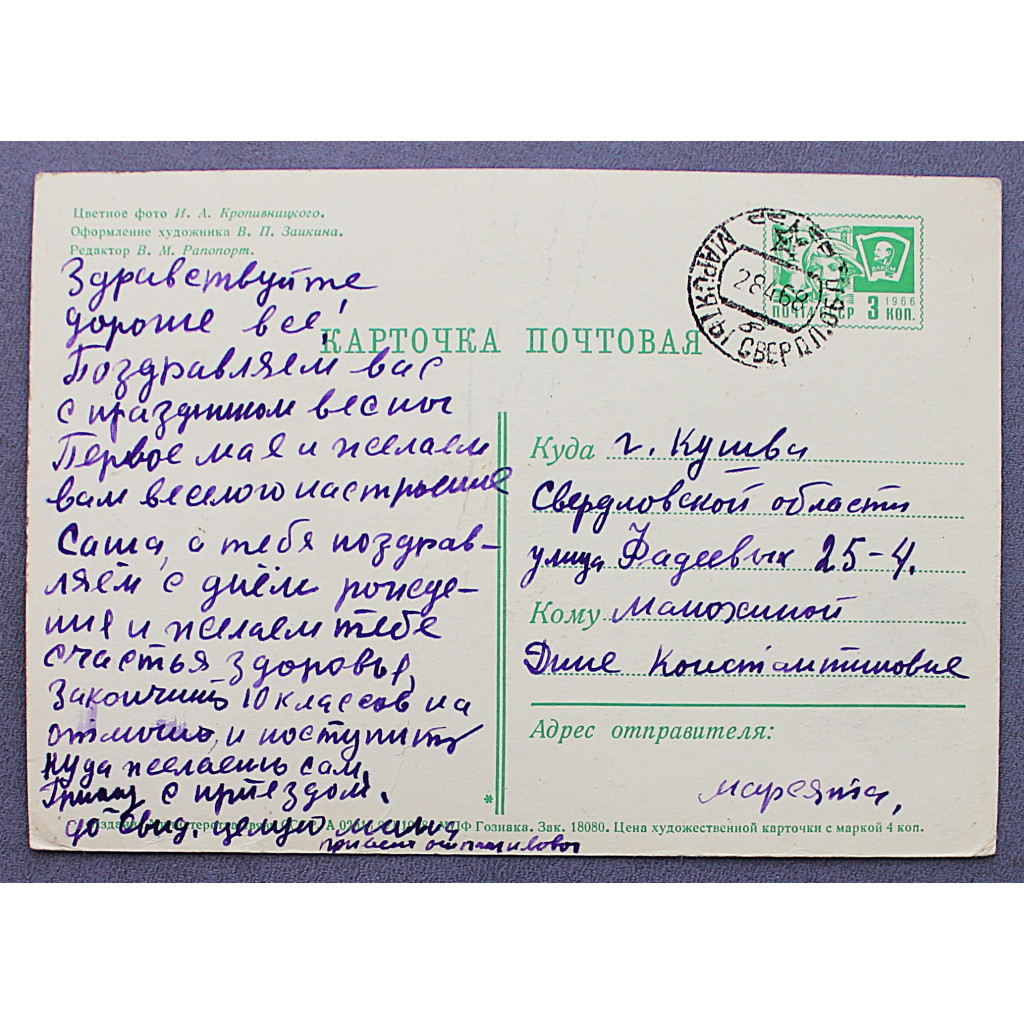 Цветное фото И. А. Кропивницкого.
Оформление художника В. П. Заикина.
Редактор В. М. Рапопорт.
Здравствуйте
дорогие все!
КАРТОЧКА ПОЧТОВАЯ
Поздравляем вас
с праздником весны
Первое мая и желаем
вам веселого настроение
Саша, а тебя поздрав-
ляем с днём рожде-
ния и желаем тебе
счастья здоровья,
Закончить 10 классов на
отлично, и поступить
куда желаешь сам.
с приездом.
до свид. целую
привет от
ВЛКСМ
1966
ПОЧТА СССР 3 КОП.
28 68
СВЕРДЛОВСК
Куда г. Кушва
Свердловской области
улица Фадеевых 25-4.
Кому Маножиной
Дине Константиновне
Адрес отправителя:
Гознака. Зак. 18080. Цена художественной карточки с маркой 4 коп.